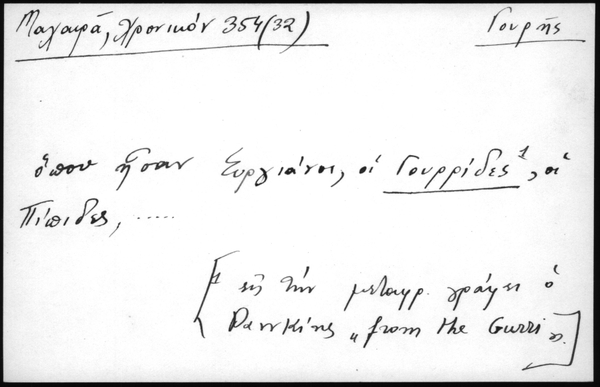 Μαχαιρά, Χρονικόν 354(32) Γουρῆς
ὅπου ἦσαν Συργιάνοι, οἱ Γουρρίδες¹, οἱ
Πίπιδες, .....
[1 εἰς τὴν μεταφρ. γράφει ὁ
Dawkins „from the Gurri".]